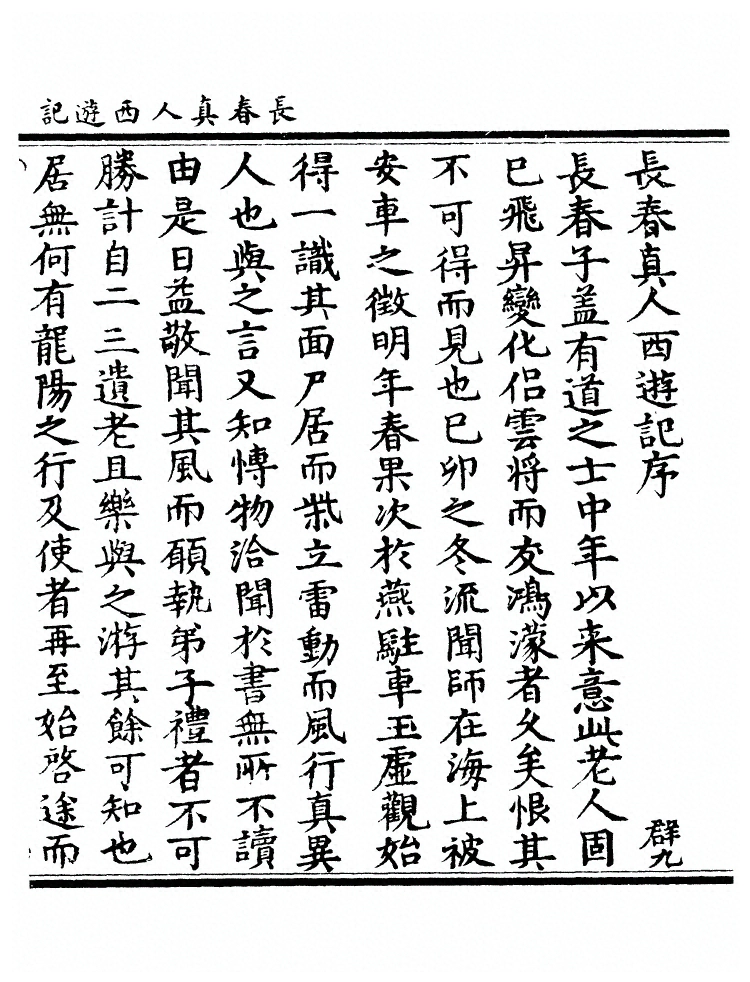 長春真人西遊記
長春真人西遊記序
群九
長春子盖有道之士中年以来意此老人固
已飛昇變化侣雲将而友鴻濛者久矣恨其
不可得而見也已卯之冬流聞師在海上被
安車之徵明年春果次於燕駐車玉虛觀始
得一識其面尸居而柴立雷動而風行真異
人也與之言又知愽物洽聞於書無所不讀
由是日益敬聞其風而願執弟子禮者不可
勝計自二三遺老且樂與之游其餘可知也
居無何有龍陽之行及使者再至始啓途而